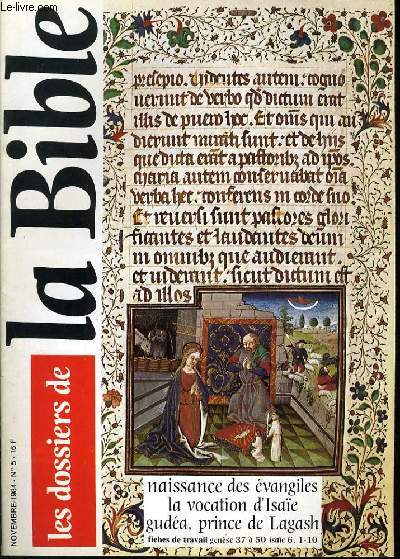 Le-Livre.com
les dossiers de
la Bible
NOVEMBRE 1984 - N° 5 - 15 F
presepio. Videntes autem: cogno
uerunt de verbo qd dictum erat
illis de puero hoc. Et om̅s qui au
dierunt mirati sunt: et de hiis
que dicta erāt a pastoribȝ ad ipos
maria autem conseruabat oīa
verba hec: conferens in corde suo
Et reuersi sunt pastores glori
ficantes et laudantes deum
in omnibȝ que audierant:
et uiderant: sicut dictum est
ad illos
naissance des évangiles
la vocation d'Isaïe
gudéa, prince de Lagash
fiches de travail genèse 37 à 50 isaïe 6, 1-10